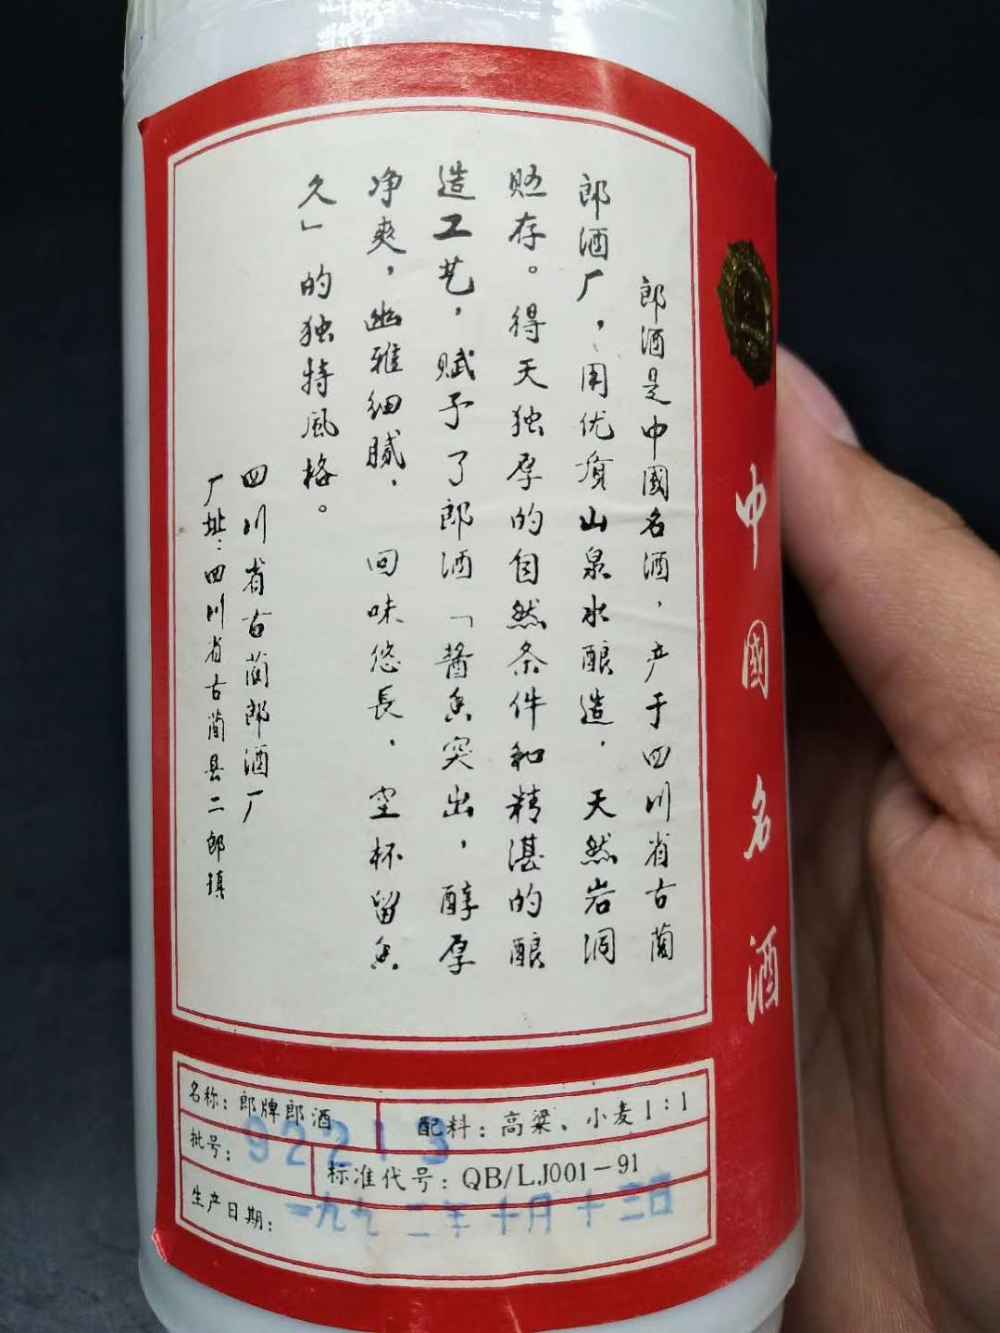 郎酒是中國名酒，产于四川省古蔺
郎酒厂，用优质山泉水酿造，天然岩洞
贮存。得天独厚的自然条件和精湛的酿
造工艺，赋予了郎酒「酱香突出，醇厚
净爽，幽雅细腻，回味悠長，空杯留香
久」的独特風格。
四川省古蔺郎酒厂
厂址：四川省古蔺县二郎镇
中國名酒
名称：郎牌郎酒
配料：高粱、小麦1:1
批号：92213
标准代号：QB/LJ001-91
生产日期：一九九二年十月十三日